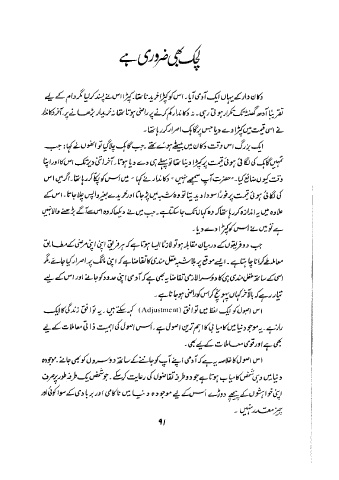 لچک بھی ضروری ہے
دکان دار کے یہاں ایک آدمی آیا۔ اس کو کپڑا خریدنا تھا۔ کپڑا اس نے پسند کر لیا مگر دام کے لیے
تقریباً آدھ گھنٹہ تک تکرار ہوتی رہی۔ نہ دکاندار کم کرنے پر راضی ہوتا تھا نہ خریدار بڑھانے پر۔ آخر دکاندار
نے اسی قیمت میں کپڑا دے دیا جس پر گاہک اصرار کر رہا تھا۔
ایک بزرگ اس وقت دکان میں بیٹھے ہوئے تھے۔ جب گاہک چلا گیا تو انھوں نے کہا: جب
تمھیں گاہک کی لگائی ہوئی قیمت پر کپڑا دینا تھا تو پہلے ہی دے دیا ہوتا۔ آخر اتنی دیر تک اس کا اور اپنا
وقت کیوں ضائع کیا۔ "حضرت آپ سمجھے نہیں" دکاندار نے کہا "میں اس کو پکا کر رہا تھا۔ اگر میں اس
کی لگائی ہوئی قیمت پر فوراً سودا دے دیتا تو وہ شبہ میں پڑ جاتا اور خریدے بغیر واپس چلا جاتا۔ اس کے
علاوہ میں یہ اندازہ کر رہا تھا کہ وہ کہاں تک جا سکتا ہے۔ جب میں نے دیکھا کہ وہ اس سے آگے بڑھنے والا نہیں
ہے تو میں نے اس کو کپڑا دے دیا۔
جب دو فریقوں کے درمیان مقابلہ ہو تو لازماً ایسا ہوتا ہے کہ ہر فریق اپنی اپنی مرضی کے مطابق
معاملے کو کرانا چاہتا ہے۔ ایسے موقع پر بلا شبہ عقل مندی کا تقاضا ہے کہ اپنی مانگ پر اصرار کیا جائے مگر
اسی کے ساتھ عقل مندی ہی کا دوسرا لازمی تقاضا یہ بھی ہے کہ آدمی اپنی حدود کو جانے اور اس کے لیے
تیار رہے کہ بالآخر کہاں پہونچ کر اس کو راضی ہو جانا ہے۔
اس اصول کو ایک لفظ میں توافق (Adjustment) کہہ سکتے ہیں۔ یہ توافق زندگی کا ایک
راز ہے۔ یہ موجودہ دنیا میں کامیابی کا اہم ترین اصول ہے۔ اس اصول کی اہمیت ذاتی معاملات کے لیے
بھی ہے اور قومی معاملات کے لیے بھی۔
اس اصول کا خلاصہ یہ ہے کہ آدمی اپنے آپ کو جاننے کے ساتھ دوسروں کو بھی جانے۔ موجودہ
دنیا میں وہی شخص کامیاب ہوتا ہے جو دو طرفہ تقاضوں کی رعایت کر سکے۔ جو شخص یک طرفہ طور پر صرف
اپنی خواہشوں کے پیچھے دوڑے اس کے لیے موجودہ دنیا میں ناکامی اور بربادی کے سوا کوئی اور
چیز مقدر نہیں۔
۹۱